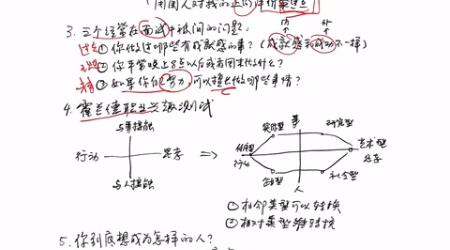 周围人对我的正向评价
3. 三个经常在面试中被问的问题:
过去 ① 你做过哪些有成就感的事? (成就感和成功不一样)
② 你平常晚上8点以后或者周末做什么?
③ 如果你很努力,可以接受做哪些事情?
4. 霍兰德职业兴趣测试
与事接触
行动 思考
与人接触
事
研究型
艺术型
思考
行动
社会型
人
① 相邻类型可以转换
② 相对类型难转换
5. 你到底想成为怎样的人?